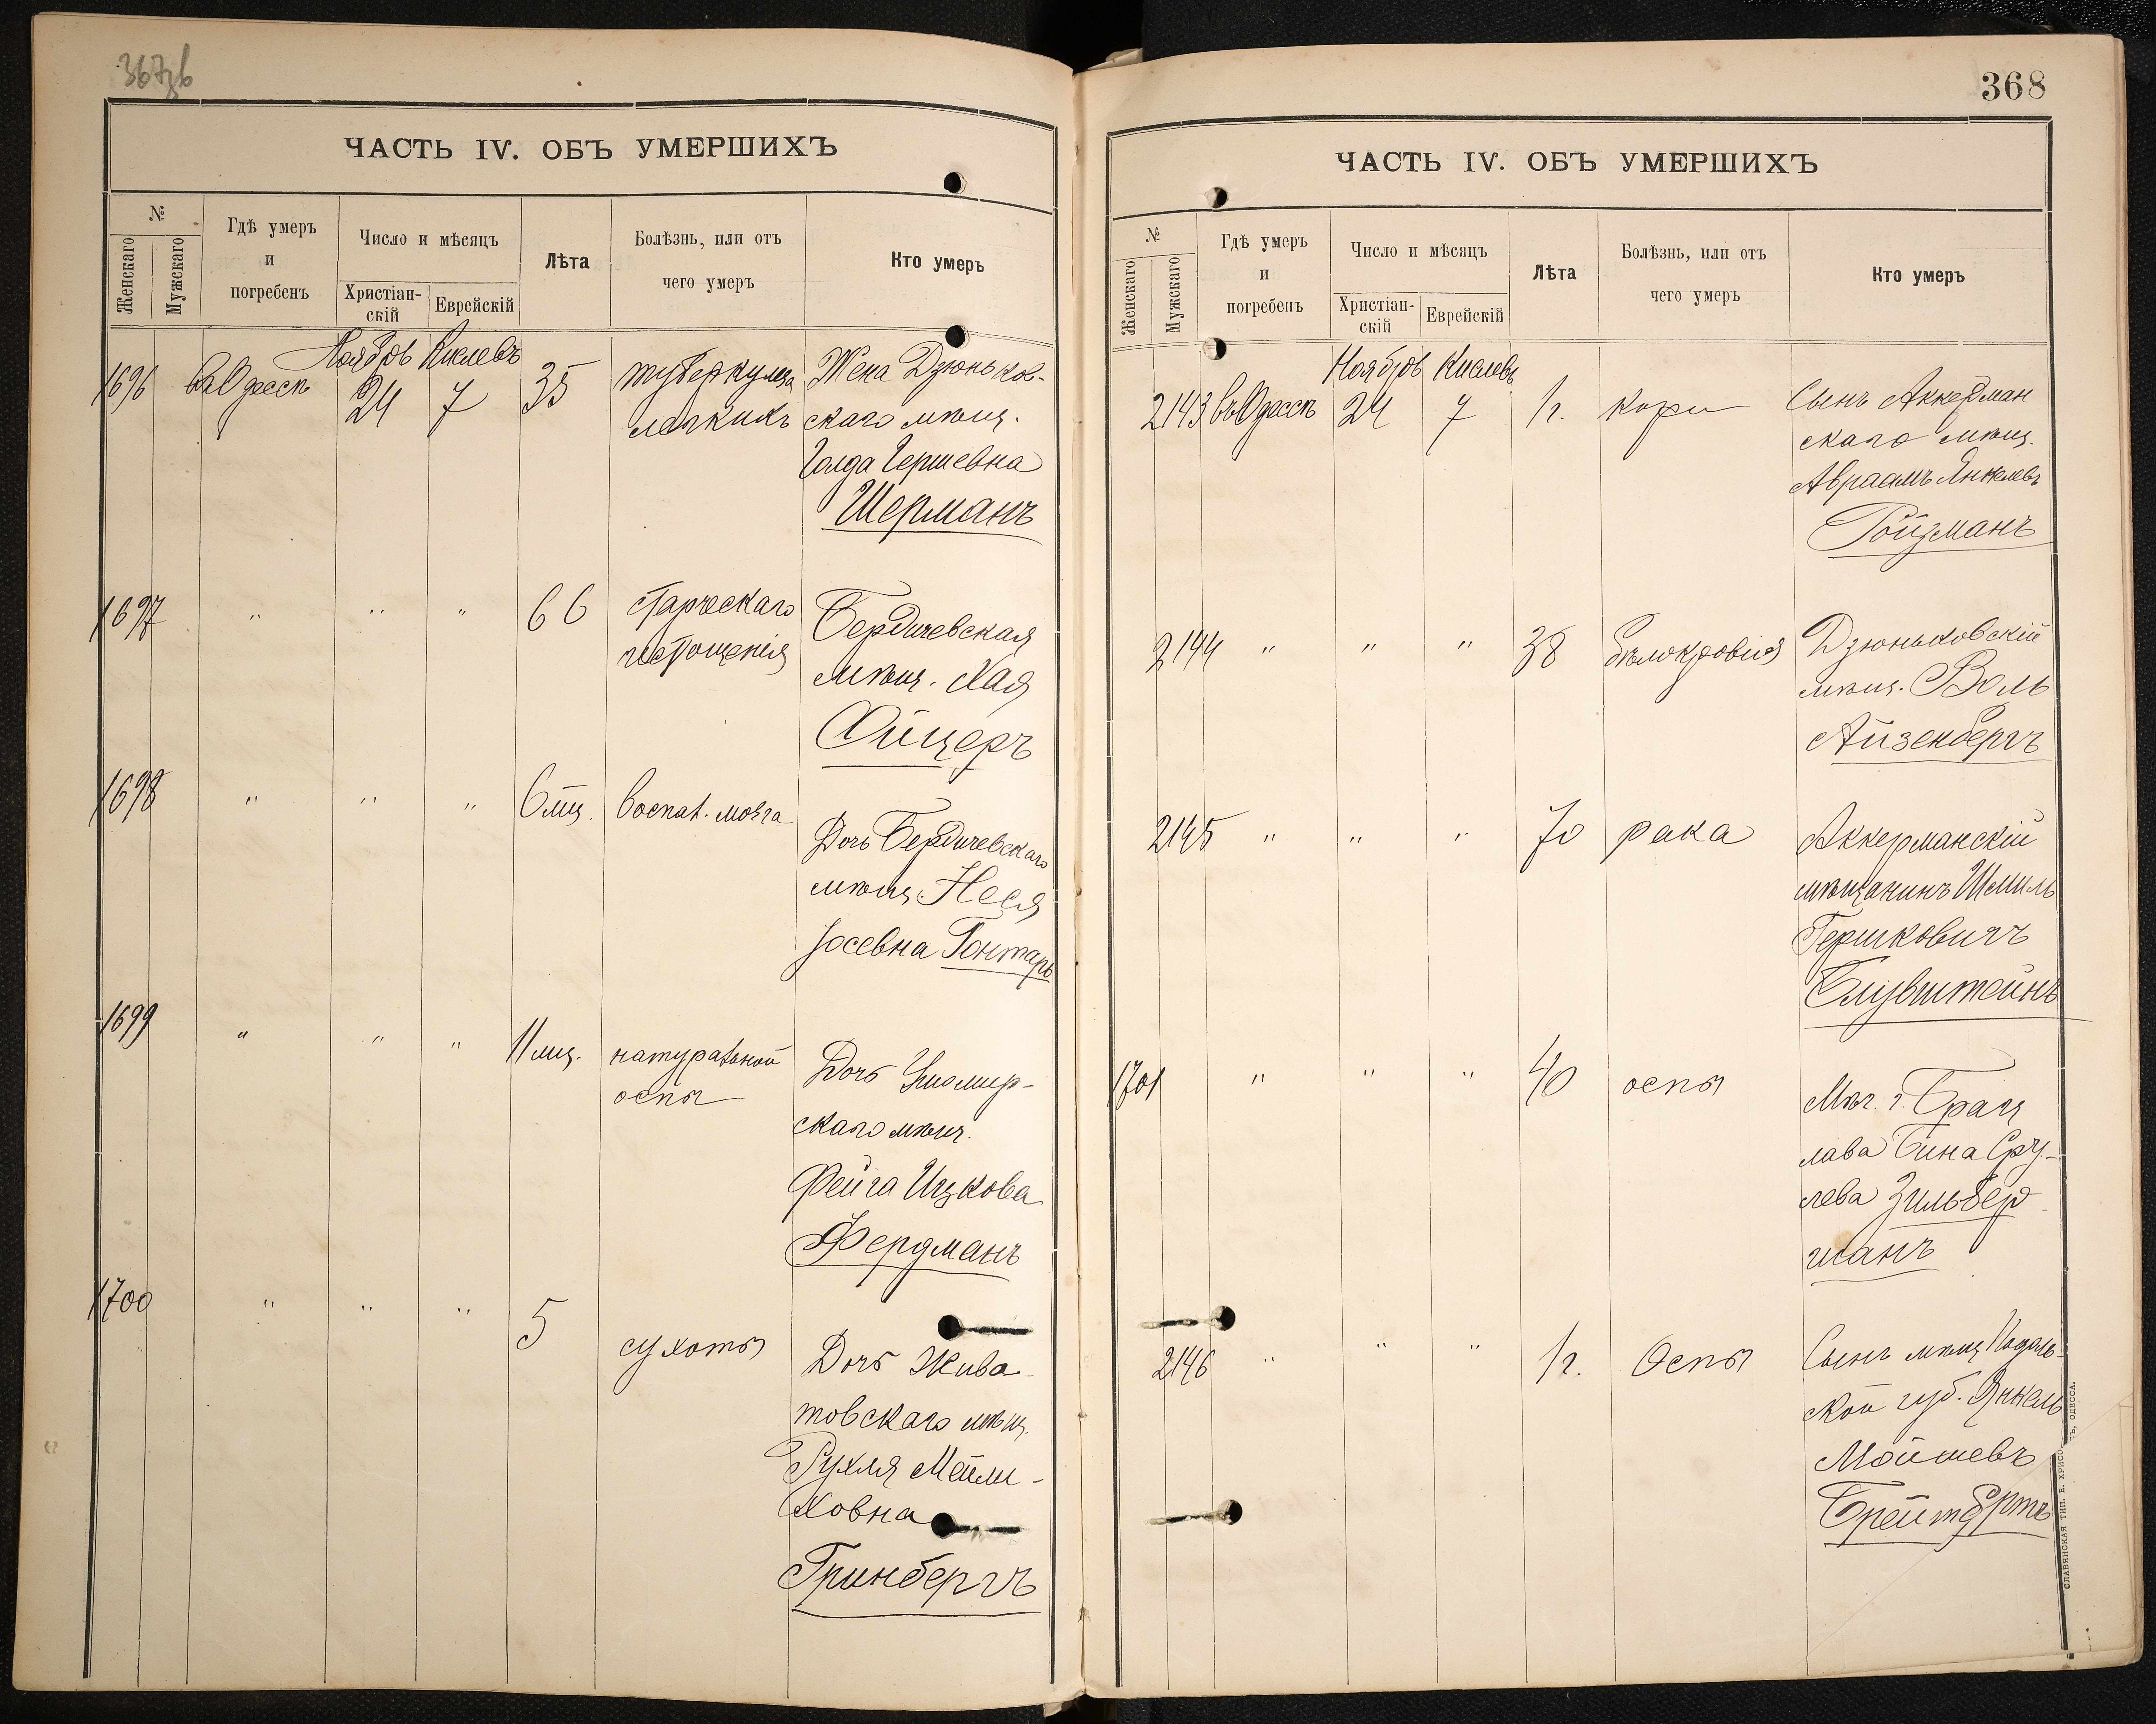 367об
ЧАСТЬ IV. ОБЪ УМЕРШИХЪ
№
Женскаго
Мужскаго
Гдѣ умеръ
и
погребенъ
Число и мѣсяцъ
Христіан-
скій
Еврейскій
Лѣта
Болѣзнь, или отъ
чего умеръ
Кто умеръ
Ноябрь Кислевъ
1696 въ Одессѣ 24 7 35 туберкулеза Жена Дзюньков-
легкихъ скаго мѣщ.
Голда Гершевна
Шерманъ
1697 " " " 66 старческаго Бердичевская
истощенія мѣщ. Хая
Ойцеръ
1698 " " " 6 мц. воспал. мозга
Дочь Бердичевскаго
мѣщ. Неся
Іосевна Гонтарь
1699 " " " 11 мц. натуральной Дочь
оспы скаго мѣщ.
Фейга Ицкова
Фердманъ
1700 " " " 5 сухоты Дочь Жива-
товскаго мѣщ.
Рухля Мейли-
ховна
Гринбергъ
368
ЧАСТЬ IV. ОБЪ УМЕРШИХЪ
№
Женскаго
Мужскаго
Гдѣ умеръ
и
погребенъ
Число и мѣсяцъ
Христіан-
скій
Еврейскій
Лѣта
Болѣзнь, или отъ
чего умеръ
Кто умеръ
Ноябрь Кислевъ
2143 въ Одессѣ 24 7 1 г. кори Сынъ Аккерман
скаго мѣщ.
Авраамъ Янкелевъ
Ройзманъ
2144 " " " 38 бѣлокровія Дзюньковскій
мѣщ. Воль
Айзенбергъ
2145 " " " 70 рака Аккерманскій
мѣщанинъ Шмиль
Гершковичъ
Блувштейнъ
1701 " " " 40 оспы
г. Брац
лава Бина Сру-
лева Зильбер
манъ
2146 " " " 1 г. Оспы Сынъ мѣщ. Подоль-
ской губ. Янкель
Мойшевъ
СЛАВЯНСКАЯ ТИП. Е. ХРИСО ОДЕССА.